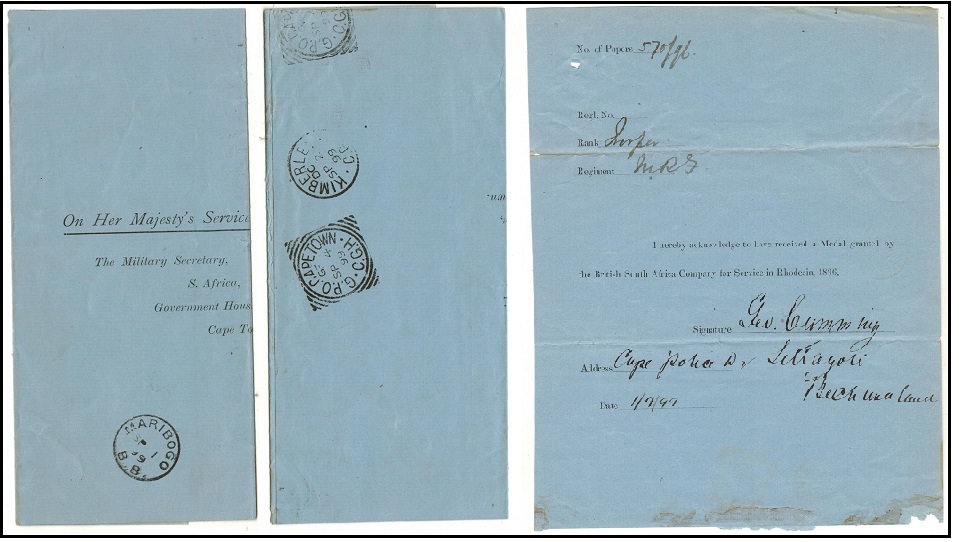 On Her Majesty's Service
The Military Secretary,
S. Africa,
Government Hous
Cape To
MARIBOGO
B.B.
G.P.O. C.G.H.
KIMBERLE
SP
99
G.P.O. CAPETOWN. C.G.H.
SP 4
99
No. of Papers 570/96.
Regl. No.
Rank Trooper
Regiment M.R.F.
I hereby acknowledge to have received a Medal granted by
the British South Africa Company for Service in Rhodesia, 1896.
Signature Geo. Cumming
Address Cape Police
Bechuanaland
Date